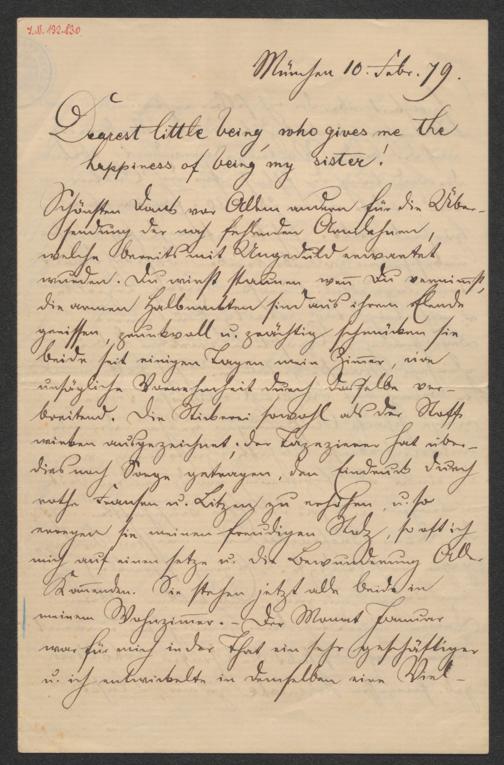 I.N. 192.830
München 10. Febr. 79.
Dearest little being, who gives me the
happiness of being my sister!
Schönsten Dank vor Allem andern für die Über-
sendung der noch fehlenden Armlehnen,
welche bereits mit Ungeduld erwartet
wurden. Du wirst staunen wenn Du vernimmst,
die armen Halbnackten sind aus ihrem Elende
gerissen, prunkvoll u. prächtig schmücken sie
beide seit einigen Tagen mein Zimmer, eine
unsägliche Vornehmheit durch dasselbe ver-
breitend. Die Stickerei sowohl als der Stoff
wirken ausgezeichnet, der Tapezierer hat über-
dies noch Sorge getragen, den Eindruck durch
rothe Fransen u. Litzen zu erhöhen, u. so
erregen sie meinen freudigen Stolz, so oft ich
mich auf einen setze u. die Bewunderung Aller
Kommenden. Sie stehen jetzt alle beide in
meinem Wohnzimmer. – Der Monat Januar
war für mich in der That ein sehr geschäftiger
u. ich entwickelte in demselben eine Viel-